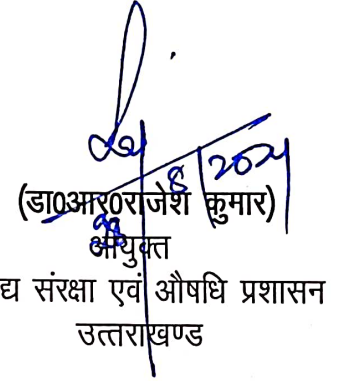 8/2024
(डा0आर0राजेश कुमार)
आयुक्त
द्य संरक्षा एवं औषधि प्रशासन
उत्तराखण्ड